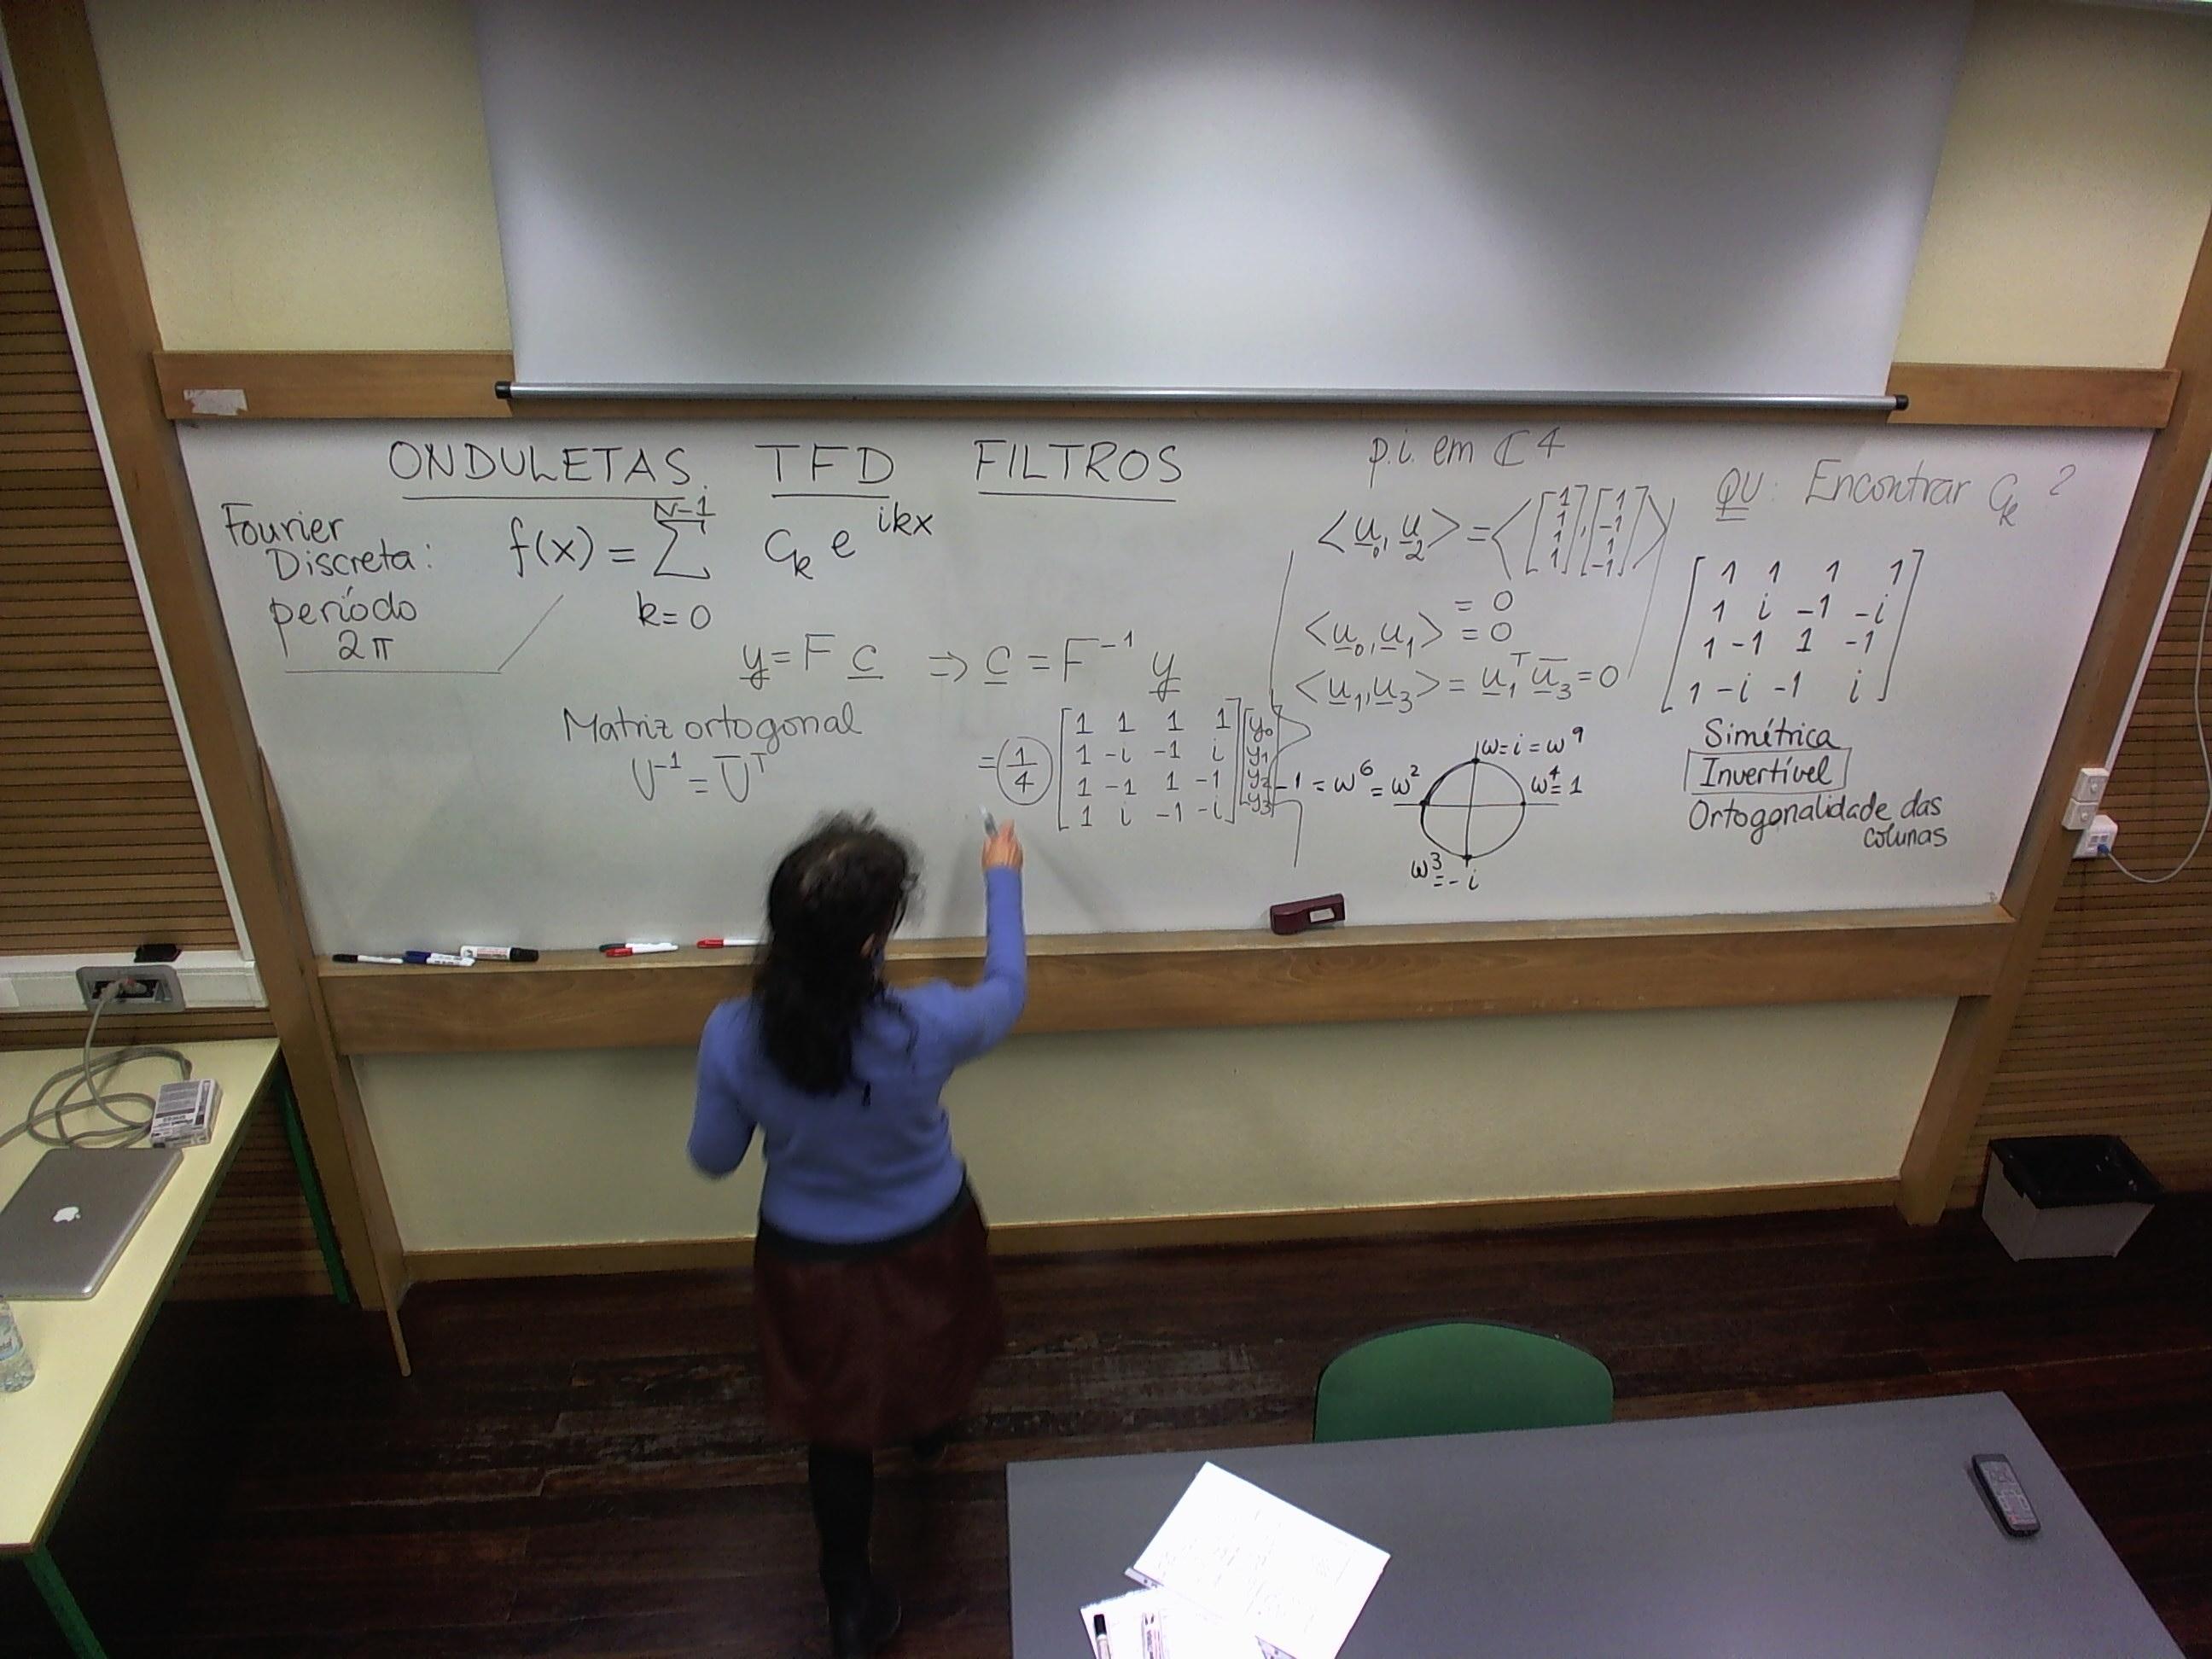 ONDULETAS. TFD FILTROS
Fourier
Discreta:
período
2π
N-1
f(x) = Σ c_k e^{ikx}
k=0
y = F c ⇒ c = F^{-1} y
Matriz ortogonal
U^{-1} = U̅^T
= 1/4 [1 1 1 1] [y_0]
[1 -i -1 i] [y_1]
[1 -1 1 -1] [y_2]
[1 i -1 -i] [y_3]
p.i. em ℂ^4
<u_0, u_2> = <[1 1 1 1], [1 -1 1 -1]>
= 0
<u_0, u_1> = 0
<u_1, u_3> = u_1^T u̅_3 = 0
w = i = w^9
-1 = w^6 = w^2
w^4 = 1
w^3 = -i
QU: Encontrar c_k ?
[1 1 1 1]
[1 i -1 -i]
[1 -1 1 -1]
[1 -i -1 i]
Simétrica
Invertível
Ortogonalidade das
colunas